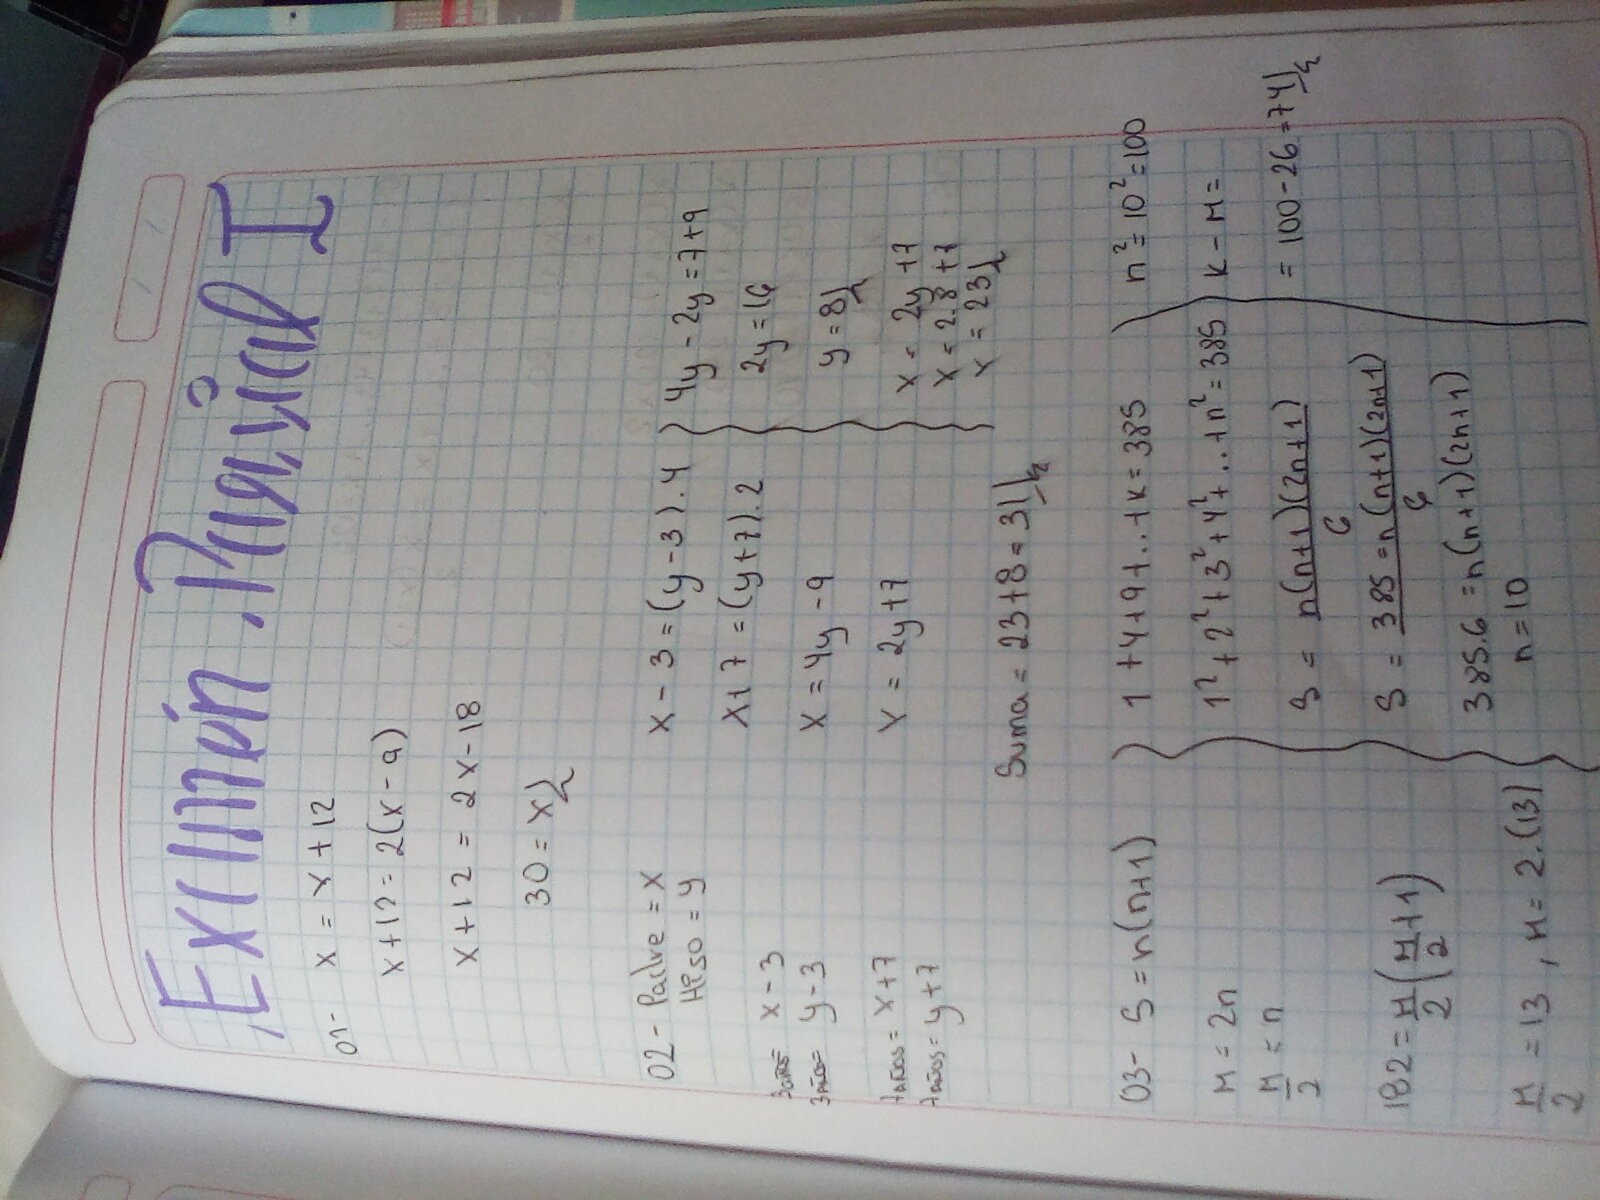 Examen Parcial I
01- x = x + 12
x+12 = 2(x-9)
x+12 = 2x-18
30 = x
02- Padre = x
Hijo = y
3años= x-3
3años= y-3
7años= x+7
7años= y+7
x-3 = (y-3).4
x+7 = (y+7).2
x = 4y-9
x = 2y+7
4y-2y = 7+9
2y = 16
y = 8
x = 2y+7
x = 2.8+7
x = 23
Suma = 23+8 = 31
03- S = n(n+1)
M = 2n
M/2 = n
182 = M/2 (M/2+1)
M/2 = 13, M = 2.(13)
1+4+9+...+k = 385
1²+2²+3²+4²+...+n² = 385
S = n(n+1)(2n+1)/6
S = 385 = n(n+1)(2n+1)/6
385.6 = n(n+1)(2n+1)
n = 10
n² = 10² = 100
k-M =
= 100-26 = 74